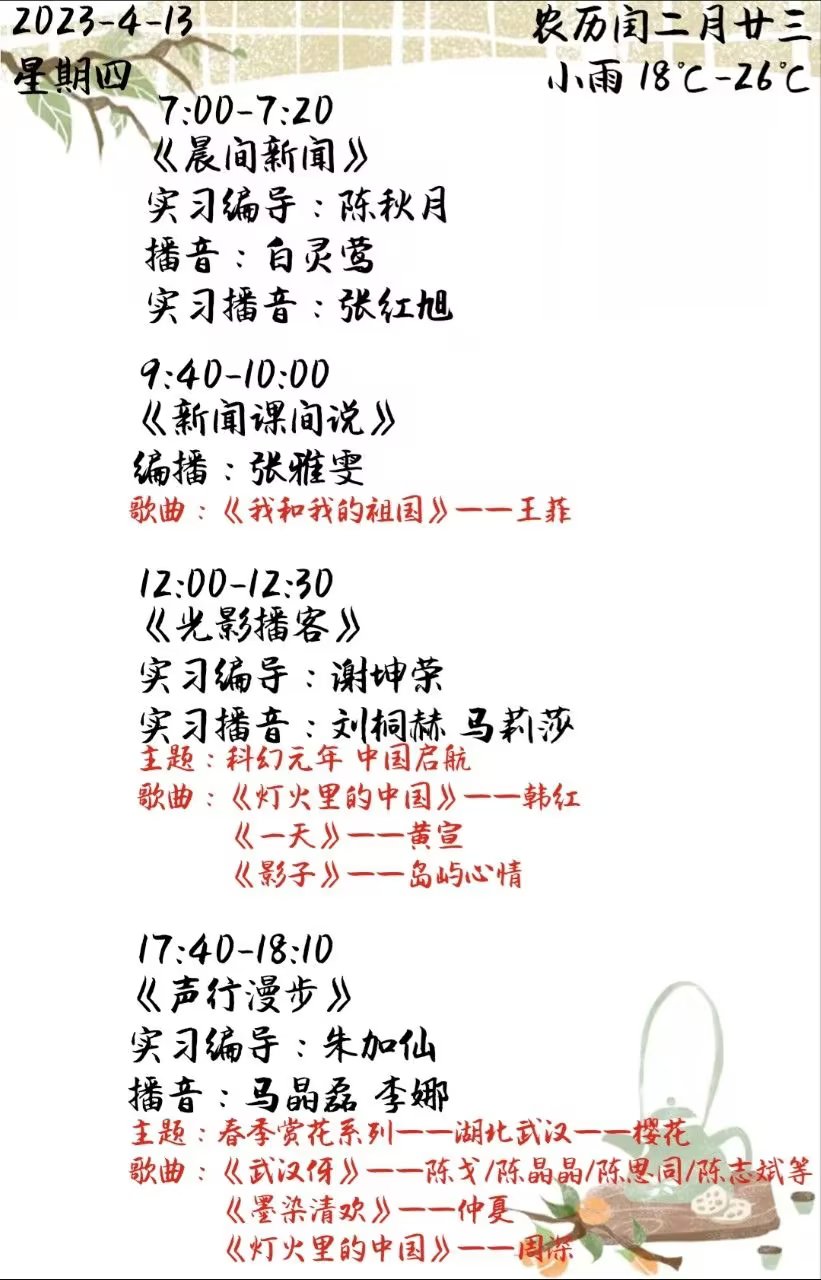 2023-4-13
农历闰二月廿三
星期四
小雨 18℃-26℃
7:00-7:20
《晨间新闻》
实习编导：陈秋月
播音：白灵莺
实习播音：张红旭
9:40-10:00
《新闻课间说》
编播：张雅雯
歌曲：《我和我的祖国》——王菲
12:00-12:30
《光影播客》
实习编导：谢坤荣
实习播音：刘桐赫 马莉莎
主题：科幻元年 中国启航
歌曲：《灯火里的中国》——韩红
《一天》——黄宣
《影子》——岛屿心情
17:40-18:10
《声行漫步》
实习编导：朱加仙
播音：马晶磊 李娜
主题：春季赏花系列——湖北武汉——樱花
歌曲：《武汉伢》——陈戈/陈晶晶/陈思同/陈志斌等
《墨染清欢》——仲夏
《灯火里的中国》——周深